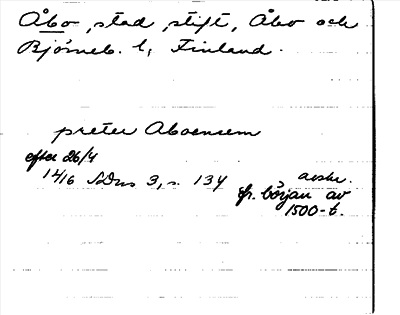 Åbo, stad, stift, Åbo och
Björneb. l, Finland.
preter Aboensem
efter 26/4
1416 SDns 3, s. 134 avskr.
fr. början av
1500-t.